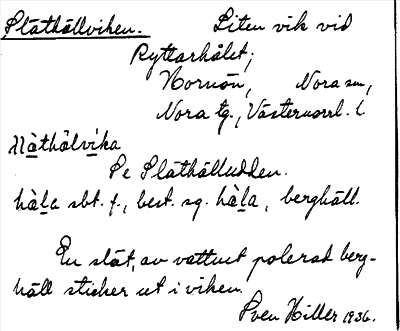 Släthällviken. Liten vik vid
Ryttarhålet,
Hornön, Nora sn,
Nora tg., Västernorrl. l.
slàthälvika
Se Släthälludden.
hàla sbt. f., best. sg. hàla, berghäll.
En slät, av vattnet polerad berg-
häll sticker ut i viken.
Sven Hiller 1936.